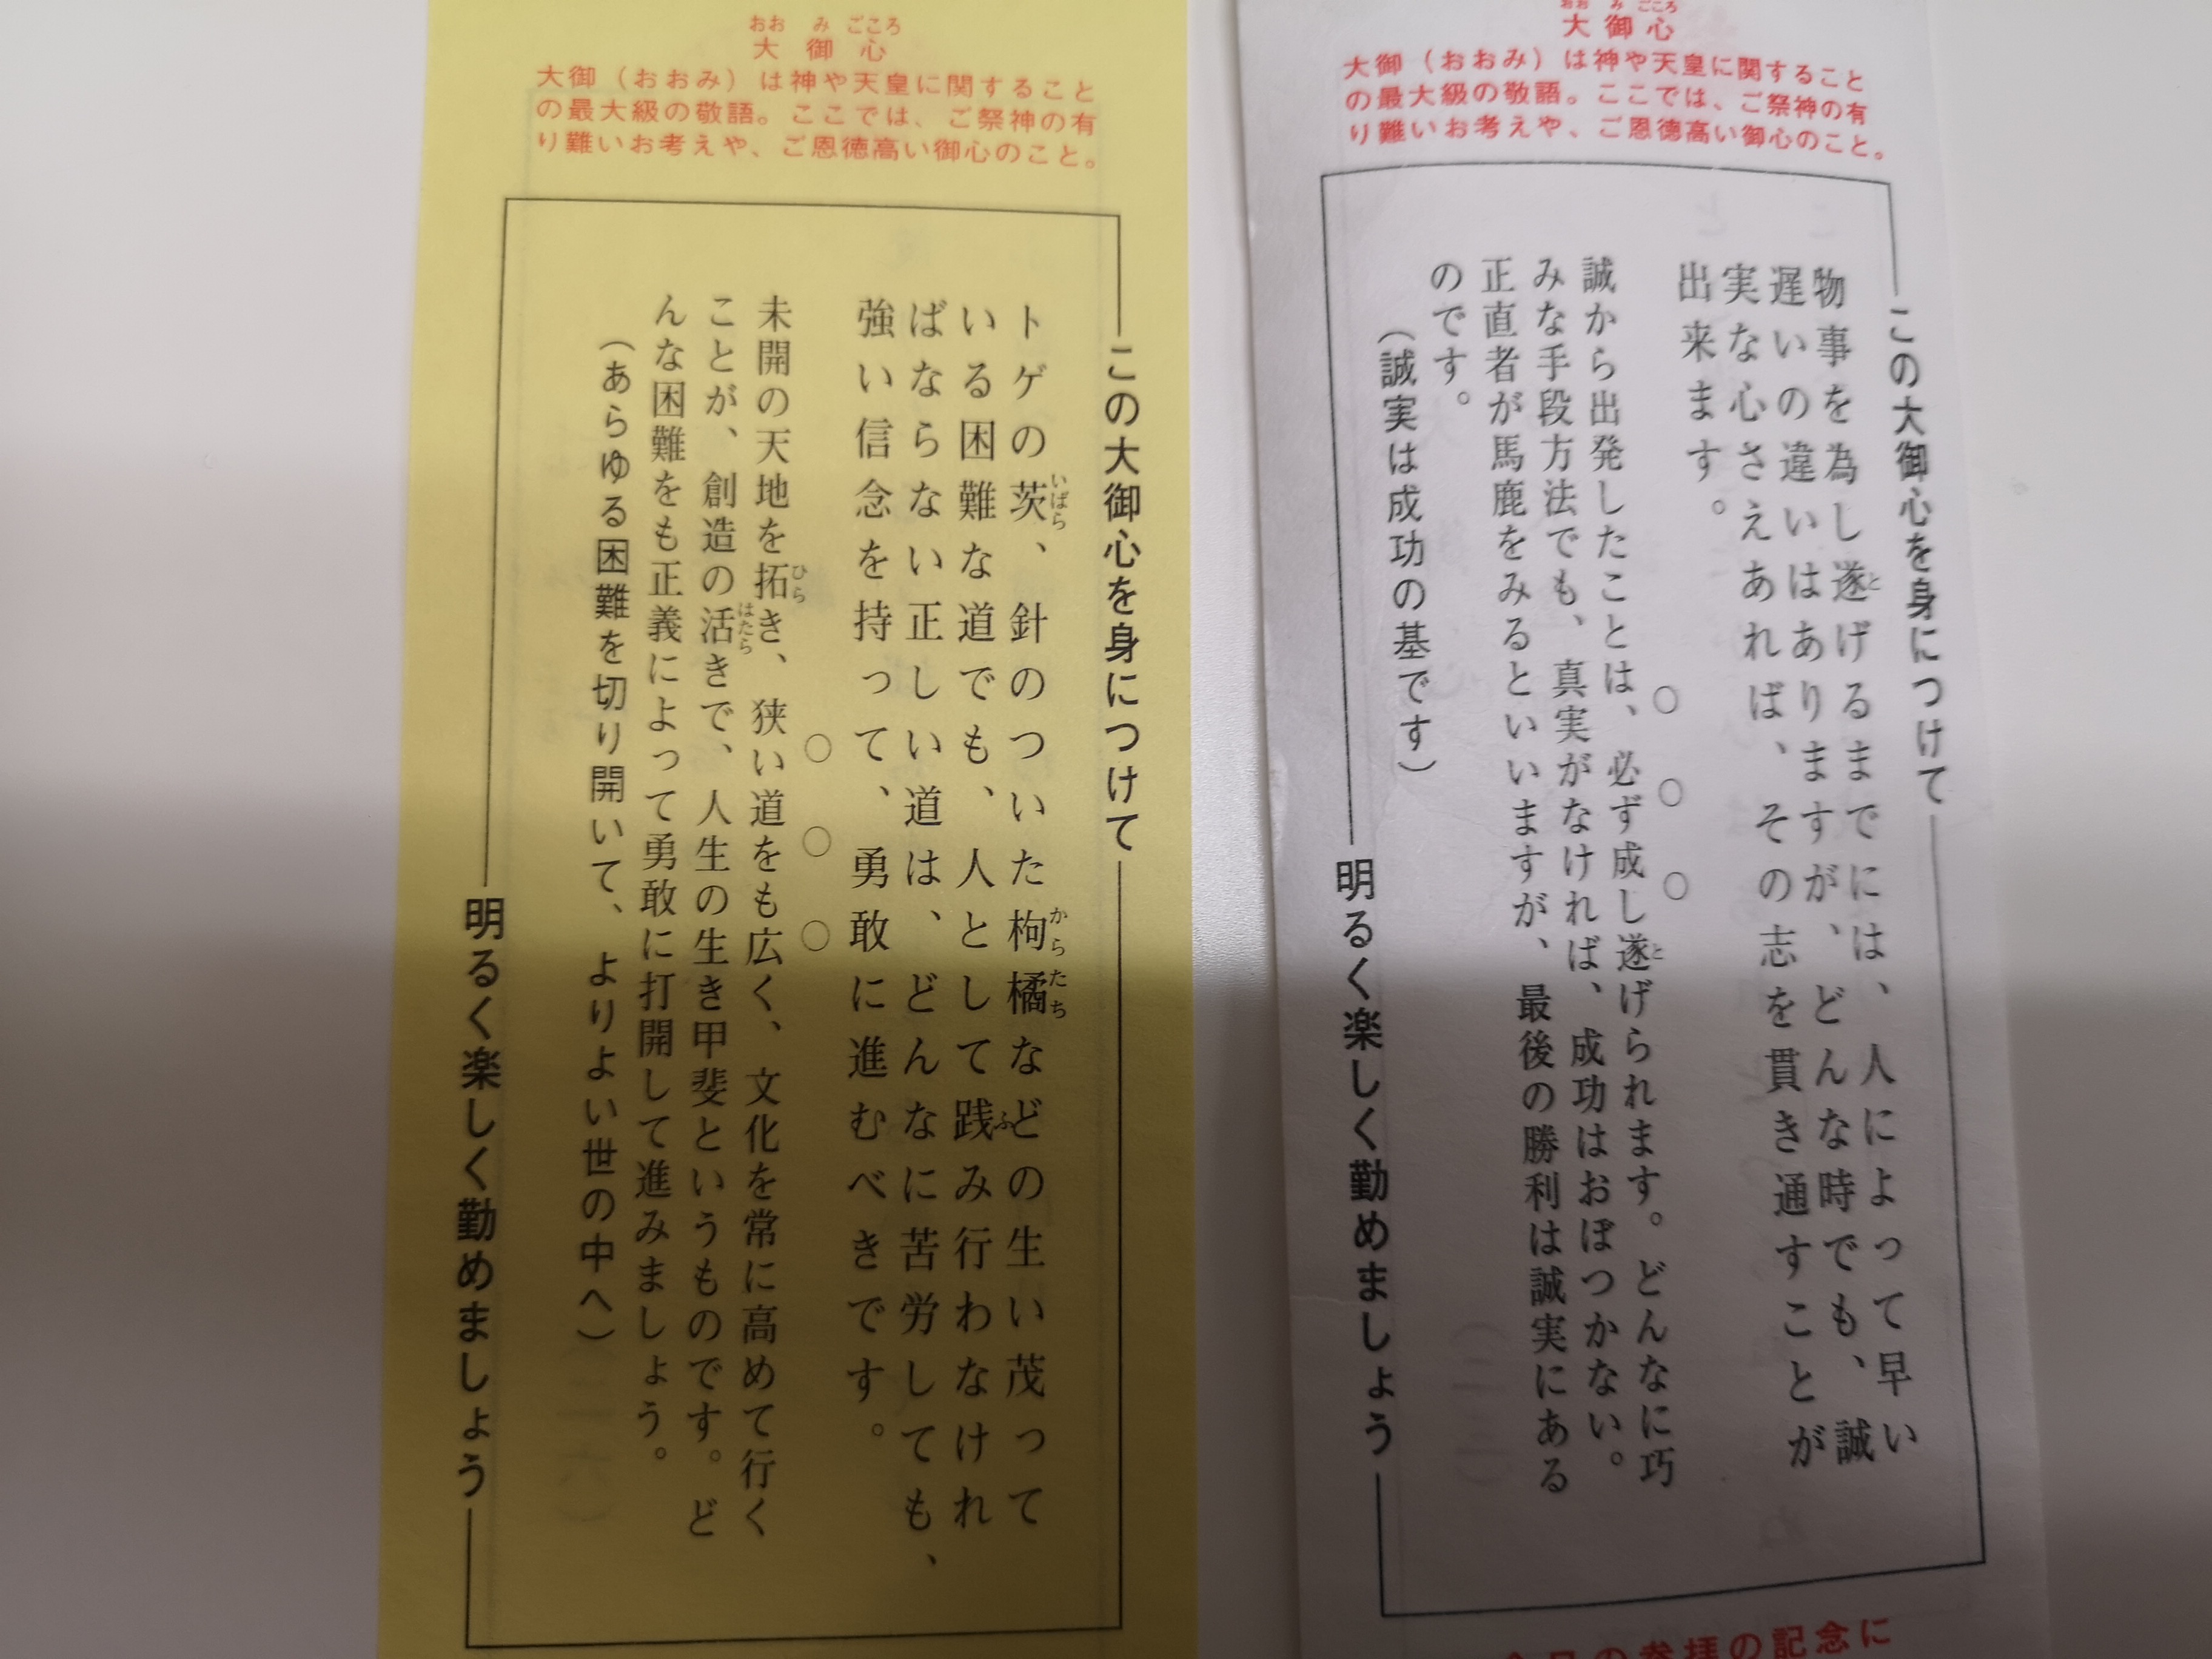 おおみごころ
大御心
大御（おおみ）は神や天皇に関すること
の最大級の敬語。ここでは、ご祭神の有
り難いお考えや、ご恩徳高い御心のこと。
この大御心を身につけて
トゲの茨、針のついた枸橘などの生い茂って
いばら
からたち
いる困難な道でも、人として践み行わなけれ
ふ
ばならない正しい道は、どんなに苦労しても、
強い信念を持って、勇敢に進むべきです。
○○○
未開の天地を拓き、狭い道をも広く、文化を常に高めて行く
ひら
ことが、創造の活きで、人生の生き甲斐というものです。ど
はたら
んな困難をも正義によって勇敢に打開して進みましょう。
（あらゆる困難を切り開いて、よりよい世の中へ）
明るく楽しく勤めましょう
おおみごころ
大御心
大御（おおみ）は神や天皇に関すること
の最大級の敬語。ここでは、ご祭神の有
り難いお考えや、ご恩徳高い御心のこと。
この大御心を身につけて
物事を為し遂げるまでには、人によって早い
と
遅いの違いはありますが、どんな時でも、誠
実な心さえあれば、その志を貫き通すことが
出来ます。
○○○
誠から出発したことは、必ず成し遂げられます。どんなに巧
と
みな手段方法でも、真実がなければ、成功はおぼつかない。
正直者が馬鹿をみるといいますが、最後の勝利は誠実にある
のです。
（誠実は成功の基です）
明るく楽しく勤めましょう
の参拝の記念に